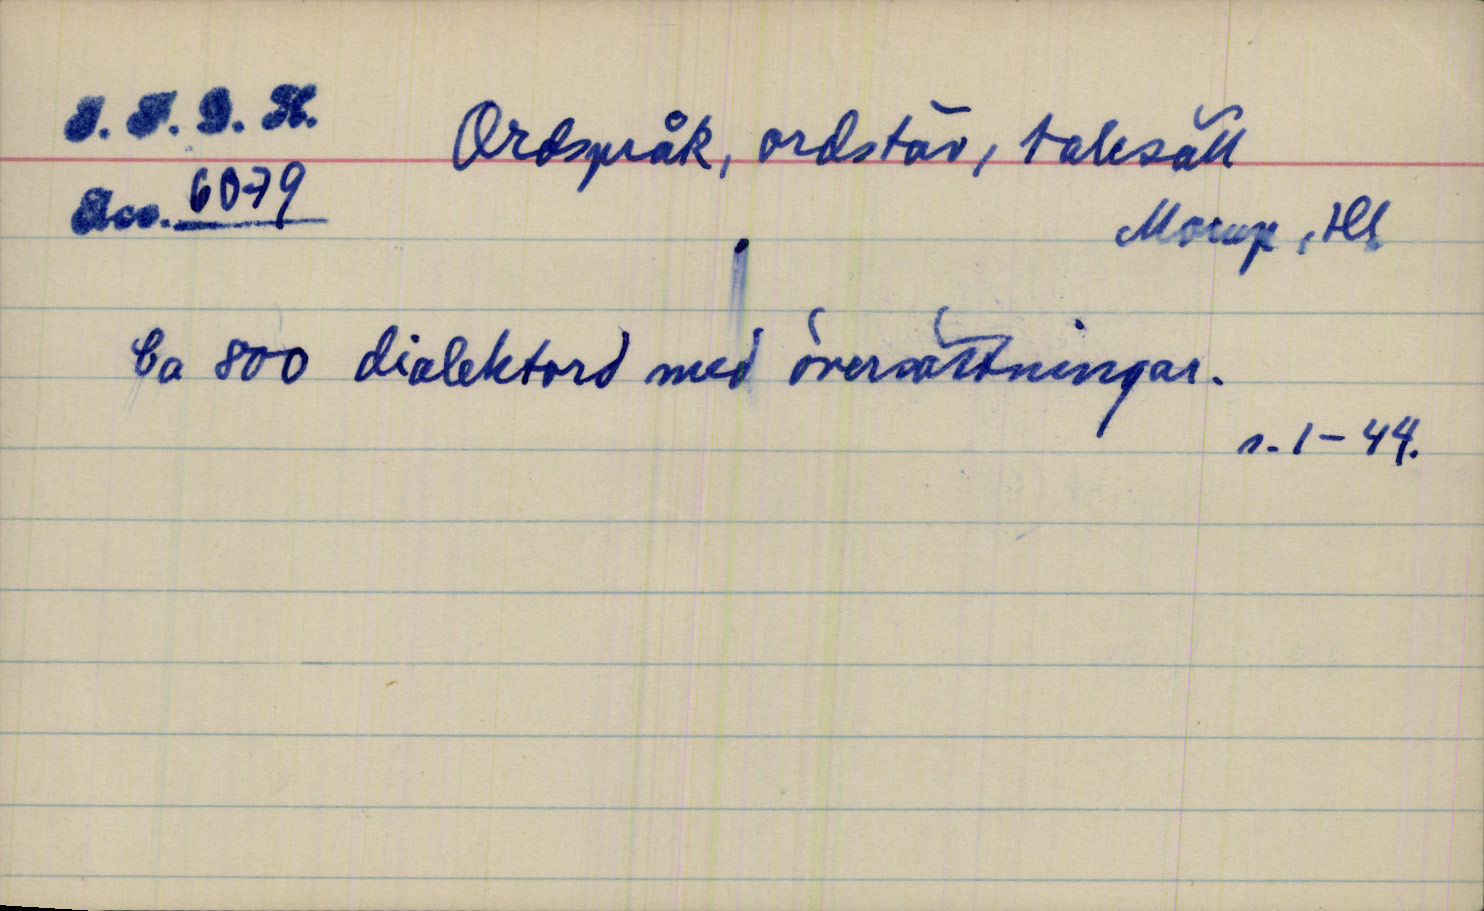 I. F. G. H. Ordspråk, ordstäv, talesätt
Acc. 6079
Morup, Hl
Ca 800 dialektord med översättningar.
s. 1-44.